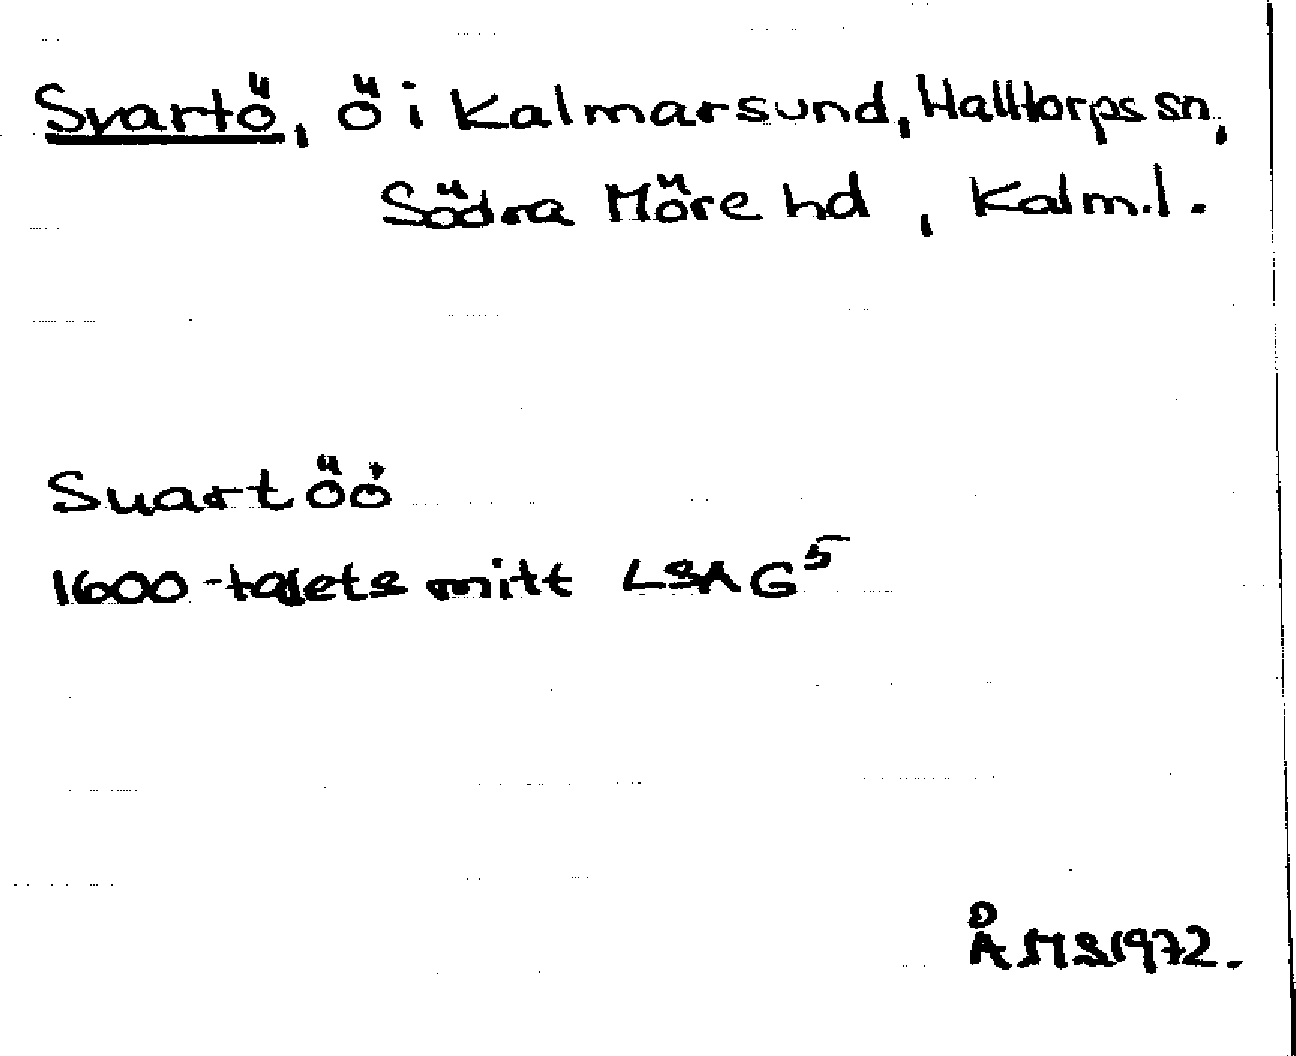 Svartö, ö i Kalmarsund, Halltorps sn,
Södra Möre hd, Kalm.l.
Suartöö
1600-talets mitt LSA G5
ÅMS 1972.